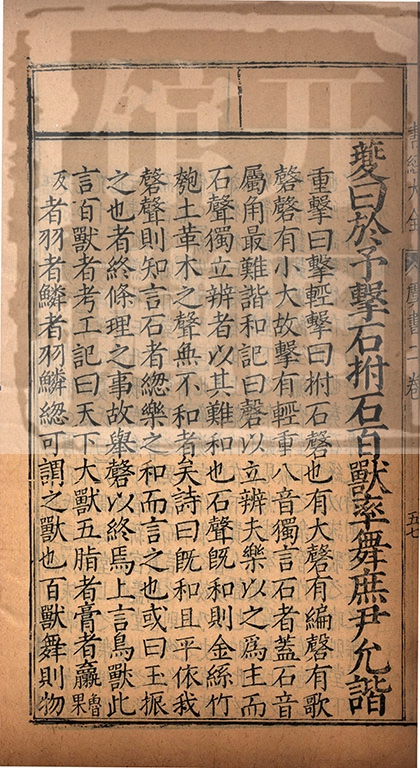 夔曰於予擊石拊石百獸率舞庶尹允諧
重擊曰擊輕擊曰拊石磬也有大磬有編磬有歌
磬磬有小大故擊有輕重八音獨言石者蓋石音
屬角最難諧和記曰磬以立辨夫樂以之爲主而
石聲獨立辨者以其難和也石聲旣和則金絲竹
匏土革木之聲無不和者矣詩曰旣和且平依我
磬聲則知言石者緫樂之和而言之也或曰玉振
之也者終條理之事故舉磬以終焉上言鳥獸此
言百獸者考工記曰天下大獸五脂者膏者臝魯果
反者羽者鱗者羽鱗緫可謂之獸也百獸舞則物